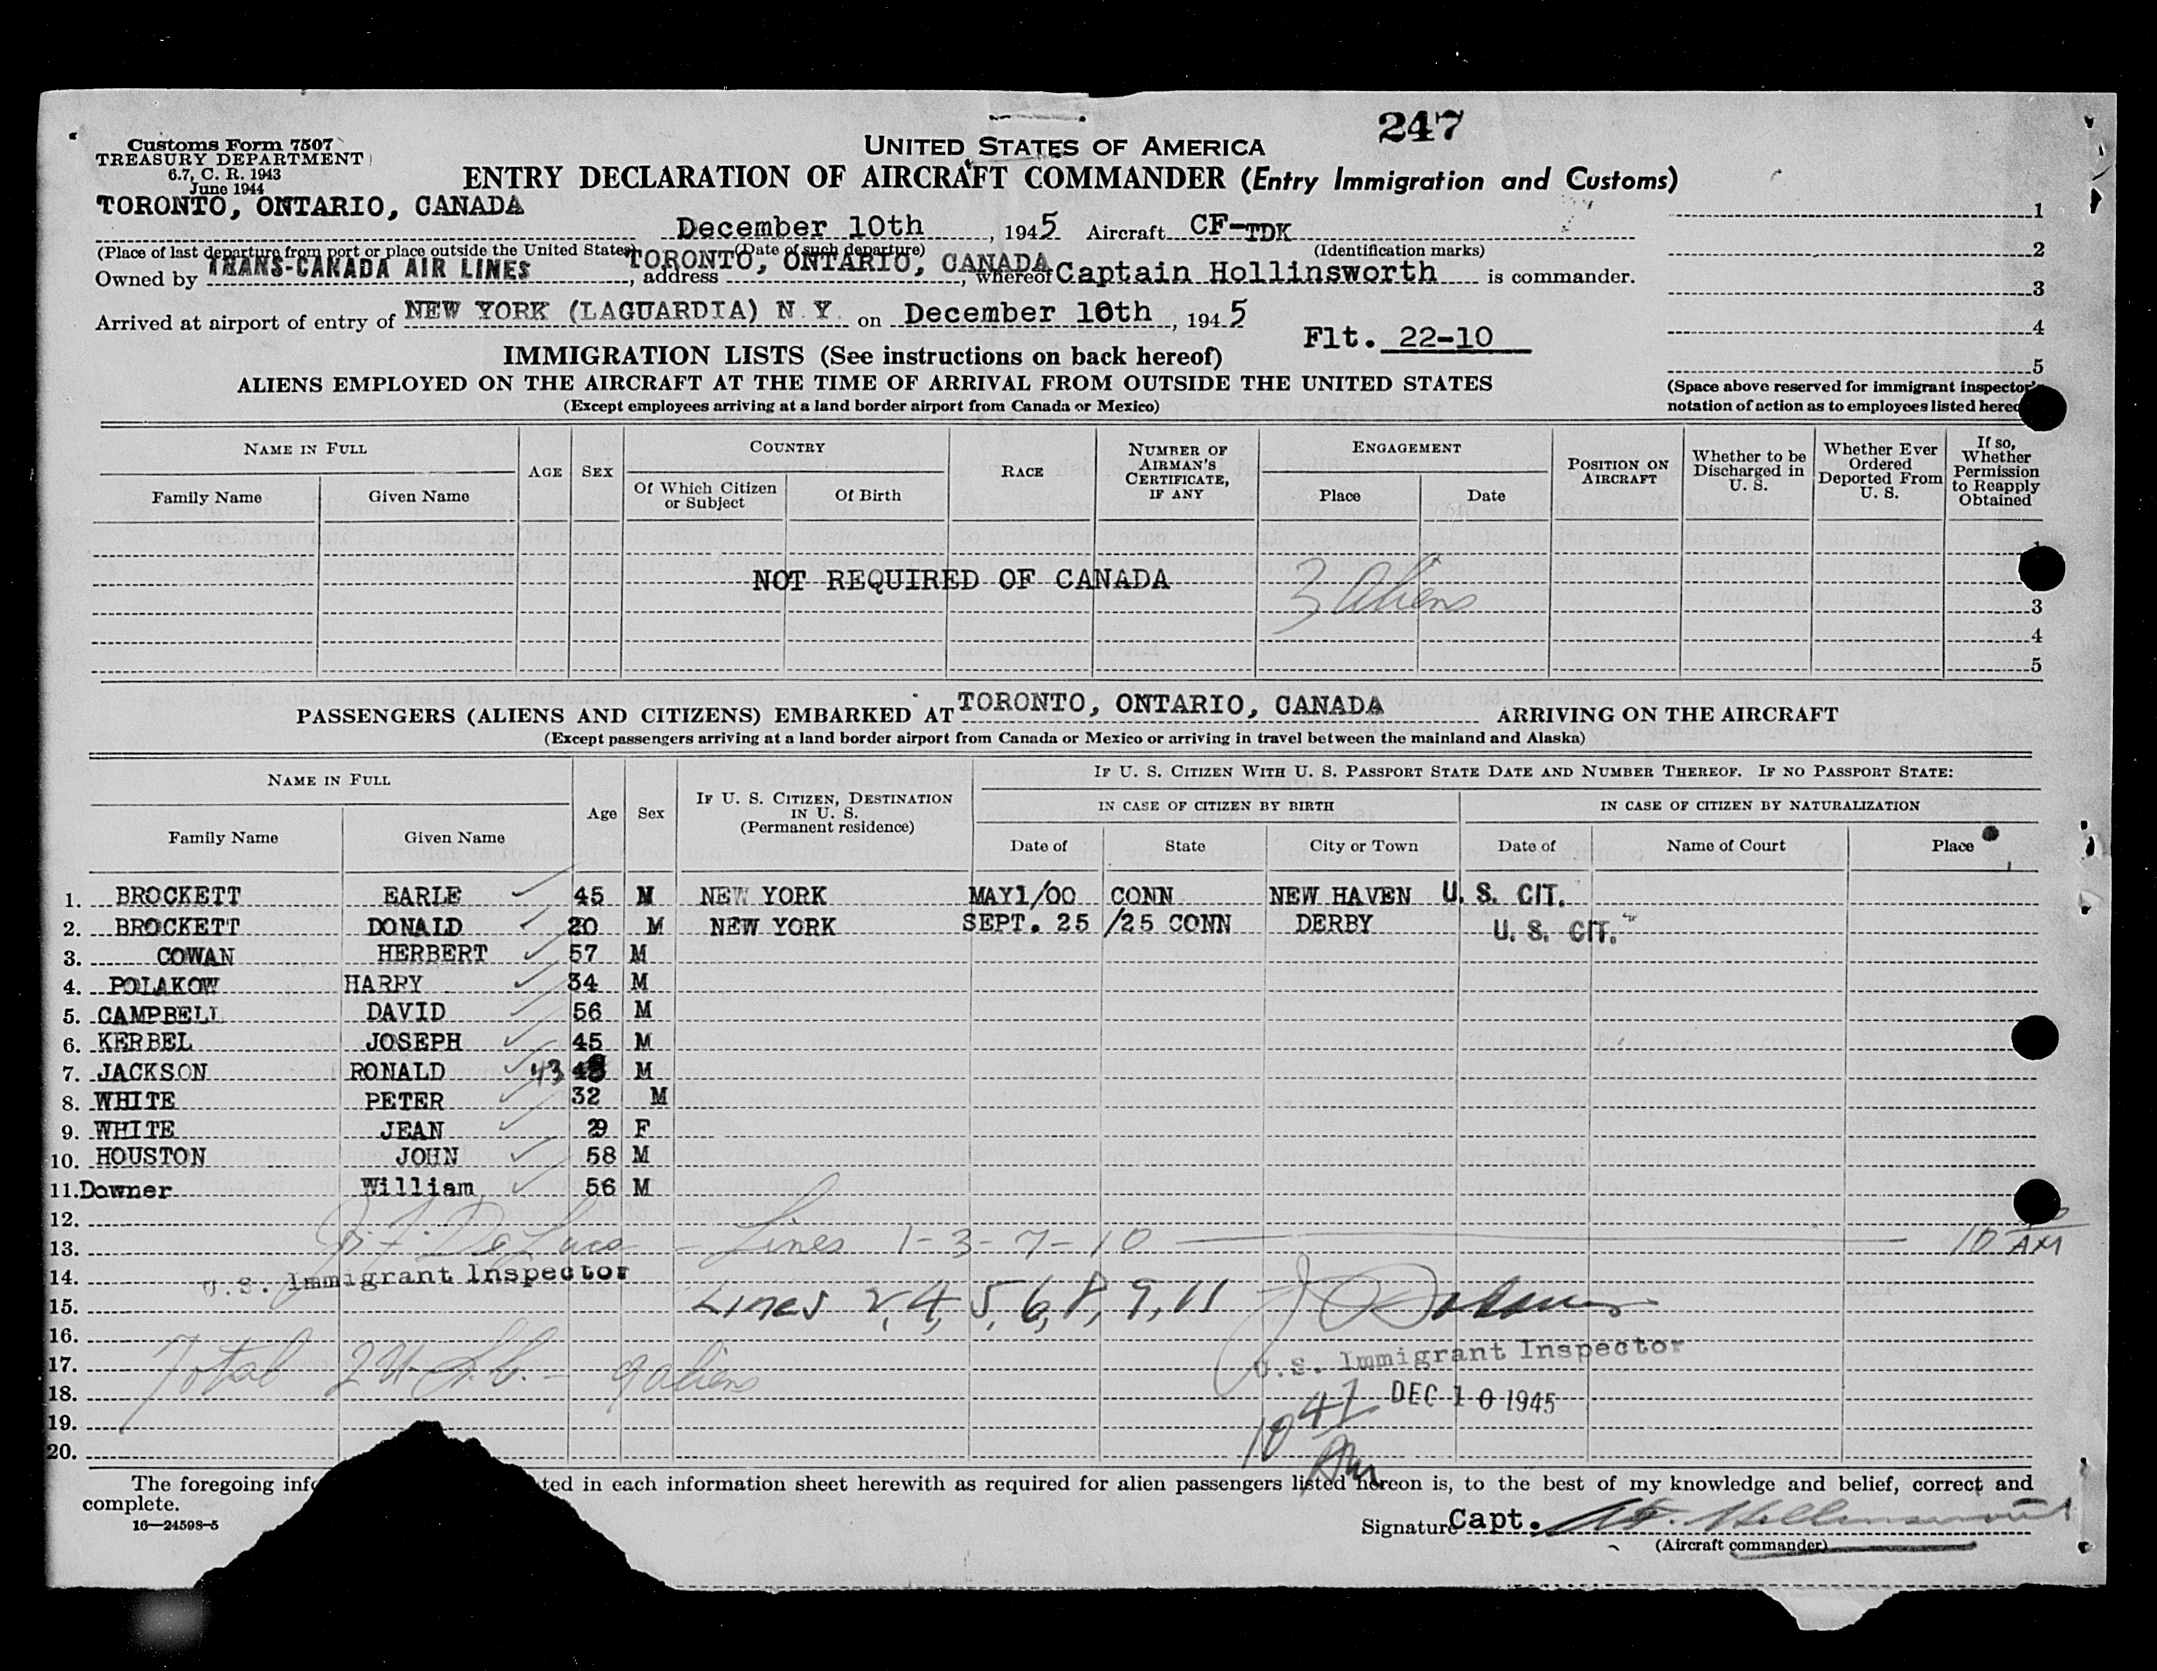 247
Customs Form 7507
TREASURY DEPARTMENT
6.7, C. R. 1943
June 1944
UNITED STATES OF AMERICA
ENTRY DECLARATION OF AIRCRAFT COMMANDER (Entry Immigration and Customs)
TORONTO, ONTARIO, CANADA
December 10th, 1945 Aircraft CF-TDK
1
(Place of last departure from port or place outside the United States) (Date of such departure) (Identification marks)
2
Owned by TRANS-CANADA AIR LINES, address TORONTO, ONTARIO, CANADA, whereof Captain Hollinsworth is commander.
3
Arrived at airport of entry of NEW YORK (LAGUARDIA) N Y. on December 10th, 1945
4
Flt. 22-10
IMMIGRATION LISTS (See instructions on back hereof)
5
ALIENS EMPLOYED ON THE AIRCRAFT AT THE TIME OF ARRIVAL FROM OUTSIDE THE UNITED STATES
(Except employees arriving at a land border airport from Canada or Mexico)
(Space above reserved for immigrant inspector's
notation of action as to employees listed
NAME IN FULL AGE SEX COUNTRY RACE NUMBER OF AIRMAN'S CERTIFICATE, IF ANY ENGAGEMENT POSITION ON AIRCRAFT Whether to be Discharged in U. S. Whether Ever Ordered Deported From U. S. If so, Whether Permission to Reapply Obtained
Family Name Given Name Of Which Citizen or Subject Of Birth Place Date
1
NOT REQUIRED OF CANADA
3 Aliens
3
4
5
PASSENGERS (ALIENS AND CITIZENS) EMBARKED AT TORONTO, ONTARIO, CANADA ARRIVING ON THE AIRCRAFT
(Except passengers arriving at a land border airport from Canada or Mexico or arriving in travel between the mainland and Alaska)
NAME IN FULL Age Sex IF U. S. CITIZEN, DESTINATION IN U. S. (Permanent residence) IF U. S. CITIZEN WITH U. S. PASSPORT STATE DATE AND NUMBER THEREOF. IF NO PASSPORT STATE:
IN CASE OF CITIZEN BY BIRTH IN CASE OF CITIZEN BY NATURALIZATION
Family Name Given Name Date of State City or Town Date of Name of Court Place
1. BROCKETT EARLE 45 M NEW YORK MAY1/00 CONN NEW HAVEN U. S. CIT.
2. BROCKETT DONALD 20 M NEW YORK SEPT. 25 /25 CONN DERBY U. S. CIT.
3. COWAN HERBERT 57 M
4. POLAKOW HARRY 34 M
5. CAMPBELL DAVID 56 M
6. KERBEL JOSEPH 45 M
7. JACKSON RONALD 43 M
8. WHITE PETER 32 M
9. WHITE JEAN 29 F
10. HOUSTON JOHN 58 M
11. Downer William 56 M
12.
13. J. F. DeLuca - Lines 1-3-7-10 10 AM
14. U.S. Immigrant Inspector
15. Lines 2, 4, 5, 6, 8, 9, 11
16. U.S. Immigrant Inspector
17. Total 2 U.S.C. - 9 aliens
18. DEC 10 1945
19. 10 47
20. AM
The foregoing ted in each information sheet herewith as required for alien passengers listed hereon is, to the best of my knowledge and belief, correct and
complete.
16—24598-5
Signature Capt. Hollinsworth
(Aircraft commander)